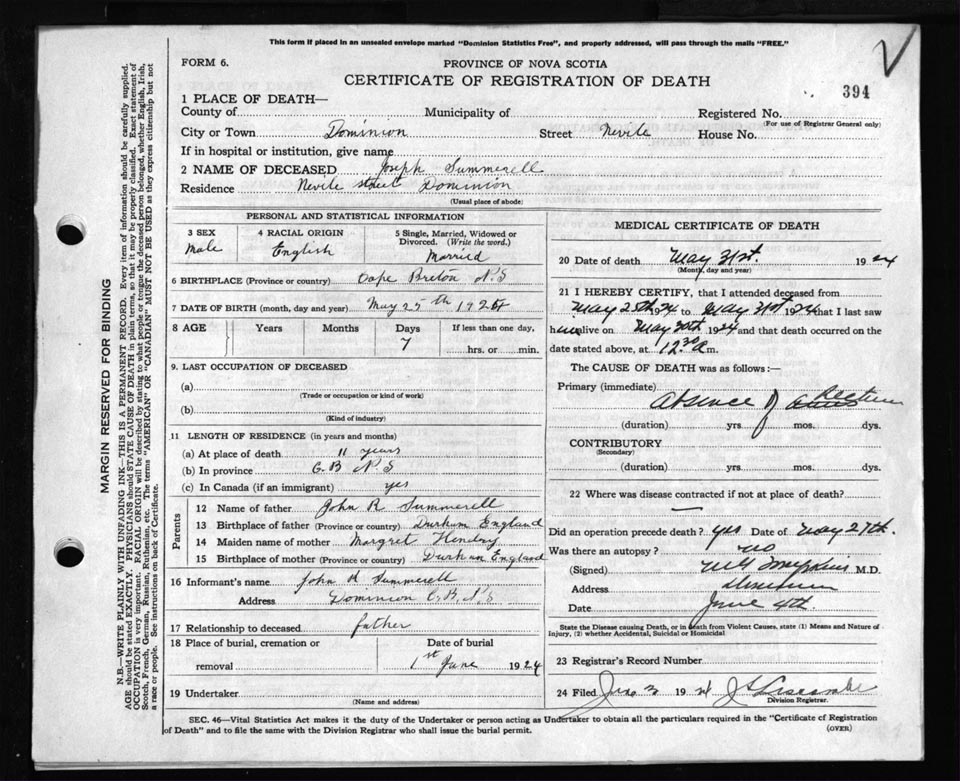 This form if placed in an unsealed envelope marked "Dominion Statistics Free", and properly addressed, will pass through the mails "FREE."
FORM 6.
PROVINCE OF NOVA SCOTIA
CERTIFICATE OF REGISTRATION OF DEATH
394
1 PLACE OF DEATH—
County of Municipality of Registered No.
(For use of Registrar General only)
City or Town Dominion Street Nevile House No.
If in hospital or institution, give name
2 NAME OF DECEASED Joseph Summerell
Residence Nevile street Dominion
(Usual place of abode)
PERSONAL AND STATISTICAL INFORMATION
3 SEX 4 RACIAL ORIGIN 5 Single, Married, Widowed or Divorced. (Write the word.)
Male English Married
6 BIRTHPLACE (Province or country) Cape Breton N S
7 DATE OF BIRTH (month, day and year) May 25th 1924
8 AGE Years Months Days If less than one day,
7 hrs. or min.
9. LAST OCCUPATION OF DECEASED
(a)
(Trade or occupation or kind of work)
(b)
(Kind of industry)
11 LENGTH OF RESIDENCE (in years and months)
(a) At place of death 11 years
(b) In province C.B N S
(c) In Canada (if an immigrant) yes
Parents
12 Name of father John R Summerell
13 Birthplace of father (Province or country) Durham England
14 Maiden name of mother Margret Hendry
15 Birthplace of mother (Province or country) Durham England
16 Informant's name John R Summerell
Address Dominion C.B. N.S
17 Relationship to deceased father
18 Place of burial, cremation or removal Date of burial
1st June 1924
19 Undertaker
(Name and address)
MEDICAL CERTIFICATE OF DEATH
20 Date of death May 31st. 1924
(Month, day and year)
21 I HEREBY CERTIFY, that I attended deceased from
May 25th 1924 to May 31st 1924 that I last saw
him alive on May 30th 1924 and that death occurred on
date stated above, at 12.30 a m.
The CAUSE OF DEATH was as follows:—
Primary (immediate)
Absence of Rectum
(duration) yrs mos. dys.
CONTRIBUTORY
(Secondary)
(duration) yrs mos. dys.
22 Where was disease contracted if not at place of death?
Did an operation precede death? yes Date of May 27th.
Was there an autopsy? no
(Signed) M.D.
Address
Date June 4th.
State the Disease causing Death, or in death from Violent Causes, state (1) Means and Nature of Injury, (2) whether Accidental, Suicidal or Homicidal
23 Registrar's Record Number
24 Filed June 3 1924
Division Registrar.
SEC. 46—Vital Statistics Act makes it the duty of the Undertaker or person acting as Undertaker to obtain all the particulars required in the "Certificate of Registration
of Death" and to file the same with the Division Registrar who shall issue the burial permit.
(OVER)
MARGIN RESERVED FOR BINDING
N.B.—WRITE PLAINLY WITH UNFADING INK—THIS IS A PERMANENT RECORD. Every item of information should be carefully supplied.
AGE should be stated EXACTLY. PHYSICIANS should STATE CAUSE OF DEATH in plain terms, so that it may be properly classified. Exact statement of
OCCUPATION is very important. RACIAL ORIGIN will be described by stating to what people or tongue the deceased person belonged, whether English, Irish,
Scotch, French, German, Russian, Ruthenian, etc. The terms "AMERICAN" OR "CANADIAN" MUST NOT BE USED as they express citizenship but not
a race or people. See instructions on back of Certificate.